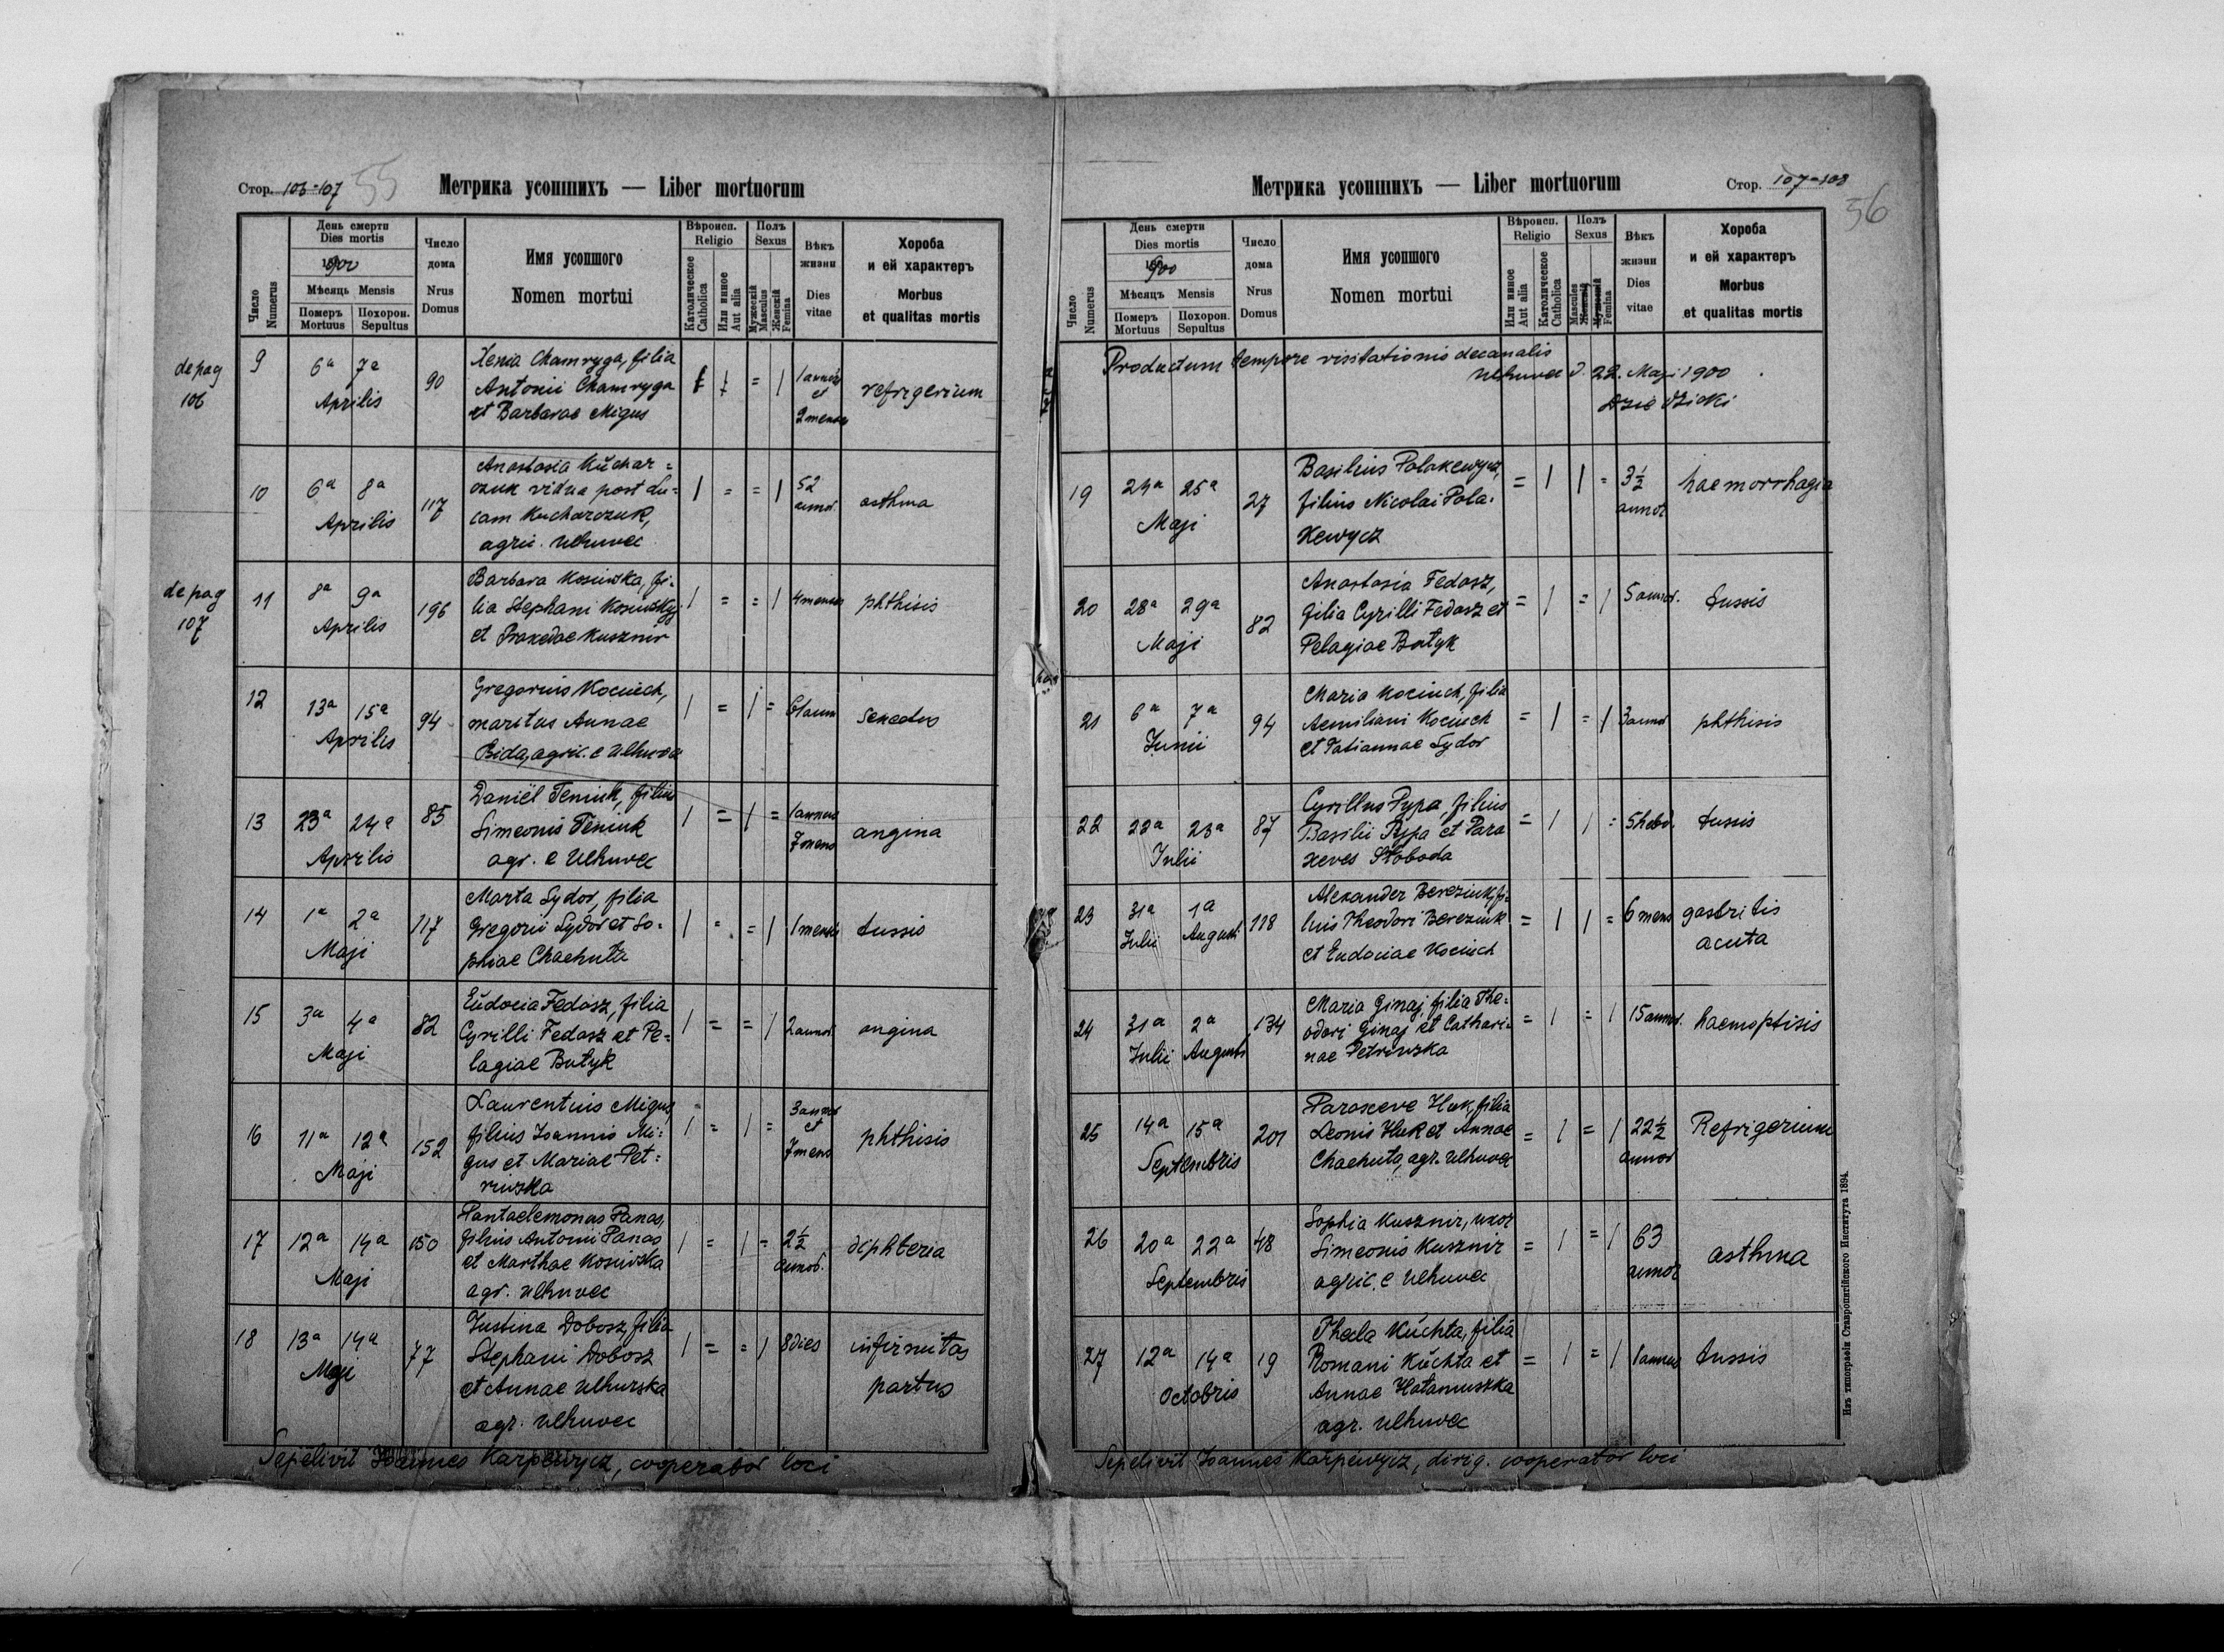 Стор. 106-107 55 Метрика усопшихъ — Liber mortuorum
Число Numerus
День смерти
Dies mortis
1900
Мѣсяць Mensis
Померъ Mortuus
Похорон. Sepultus
Число дома
Nrus Domus
Имя усопшого
Nomen mortui
Вѣроисп.
Religio
Католическое Catholica
Или инное Aut alia
Полъ
Sexus
Мужескій Masculus
Женскій Femina
Вѣкъ жизни
Dies vitae
Хороба
и ей характеръ
Morbus
et qualitas mortis
de pag
106
9 6a 7a Aprilis 90
Xenia Chamryga, filia
Antonii Chamryga
et Barbarae Migus
1 annus
et
2 menses
refrigerium
10 6a 8a Aprilis 117
Anastasia Kuchar=
czuk vidua post Lu=
cam Kucharczuk,
agric. Ulhuvec
1 = = 1
52
annor.
asthma
de pag
107
11 8a 9a Aprilis 196
Barbara Kosiwska, fi=
lia Stephani Kosiwskyj
et Praxedae Kusznir
1 = = 1
4 menses
phthisis
12 13a 15a Aprilis 94
Gregorius Kociuch,
maritus Annae
Bida, agric. e Ulhuvec
1 = 1 =
61 ann
senectus
13 23a 24a Aprilis 85
Daniël Teniuk, filius
Simeonis Teniuk
agr. e Ulhuvec
1 = 1 =
1 annus
7 mens
angina
14 1a 2a Maji 117
Marta Sydor, filia
Gregorii Sydor et So=
phiae Chachuta
1 = = 1
1 mensis
tussis
15 3a 4a Maji 82
Eudocia Fedosz, filia
Cyrilli Fedosz et Pe=
lagiae Butyk
1 = = 1
2 annor.
angina
16 11a 12a Maji 152
Laurentius Migus
filius Ioannis Mi=
gus et Mariae Pet=
riwska
1 = 1 =
3 annor
et
7 mens
phthisis
17 12a 14a Maji 150
Pantaelemonus Panas,
filius Antonii Panas
et Marthae Kosiwska
agr. Ulhuvec
1 = 1 =
2½
annor.
diphteria
18 13a 14a Maji 77
Justina Dobosz, filia
Stephani Dobosz
et Annae Ulhurska
agr. Ulhuvec
1 = = 1
8 dies
infirmitas
partus
Sepelivit Ioannes Karpewycz, cooperator loci
Метрика усопшихъ — Liber mortuorum Стор. 107-108
56
Число Numerus
День смерти
Dies mortis
1900
Мѣсяць Mensis
Померъ Mortuus
Похорон. Sepultus
Число дома
Nrus Domus
Имя усопшого
Nomen mortui
Вѣроисп.
Religio
Или инное Aut alia
Католическое Catholica
Полъ
Sexus
Masculus
Femina
Вѣкъ жизни
Dies vitae
Хороба
и ей характеръ
Morbus
et qualitas mortis
Productum tempore visitationis decanalis
Ulhuvec d. 22. Maji 1900
Dziedzicki
19 24a 25a Maji 27
Basilius Polakewycz,
filius Nicolai Pola=
kewycz
= 1 1 =
3½
annor
haemorrhagia
20 28a 29a Maji 82
Anastasia Fedosz,
filia Cyrilli Fedosz et
Pelagiae Butyk
= 1 = 1
5 annor.
tussis
21 6a 7a Junii 94
Maria Kociuch, filia
Aemiliani Kociuch
et Tatiannae Sydor
= 1 = 1
3 annor
phthisis
22 22a 23a Julii 87
Cyrillus Pypa, filius
Basilii Pypa et Para
xeves Słoboda
= 1 1 =
5 hebd.
tussis
23 31a Julii 1a Augusti 118
Alexander Bereziuk, fi=
lius Theodori Bereziuk
et Eudociae Kociuch
= 1 1 =
6 mens
gastritis
acuta
24 31a Julii 2a Augusti 134
Maria Ginaj, filia The=
odori Ginaj et Cathari=
nae Petriwska
= 1 = 1
15 annor.
haemoptisis
25 14a 15a Septembris 201
Paraxeve Huk, filia
Leonis Huk et Annae
Chachuta, agr. Ulhuvec
= 1 = 1
22½
annor
Refrigerium
26 20a 22a Septembris 48
Sophia Kusznir, uxor
Simeonis Kusznir
agric. e Ulhuvec
= 1 = 1
63
annor
asthma
27 12a 14a Octobris 19
Thecla Kuchta, filia
Romani Kuchta et
Annae Hatamuszka
agr. Ulhuvec
= 1 = 1
1 annus
tussis
Sepelivit Ioannes Karpewycz, dirig. cooperator loci
Изъ типографіи Ставропигійского Института 1894.